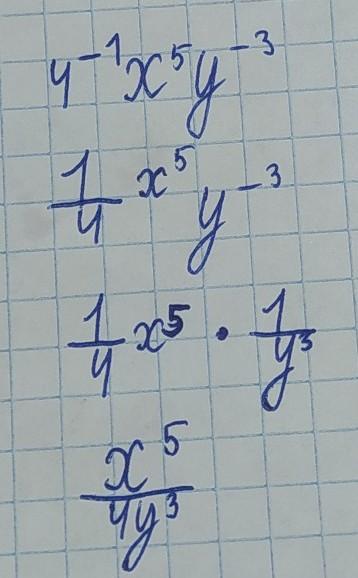 4⁻¹x⁵y⁻³
1/4 x⁵ y⁻³
1/4 x⁵ · 1/y³
x⁵/4y³